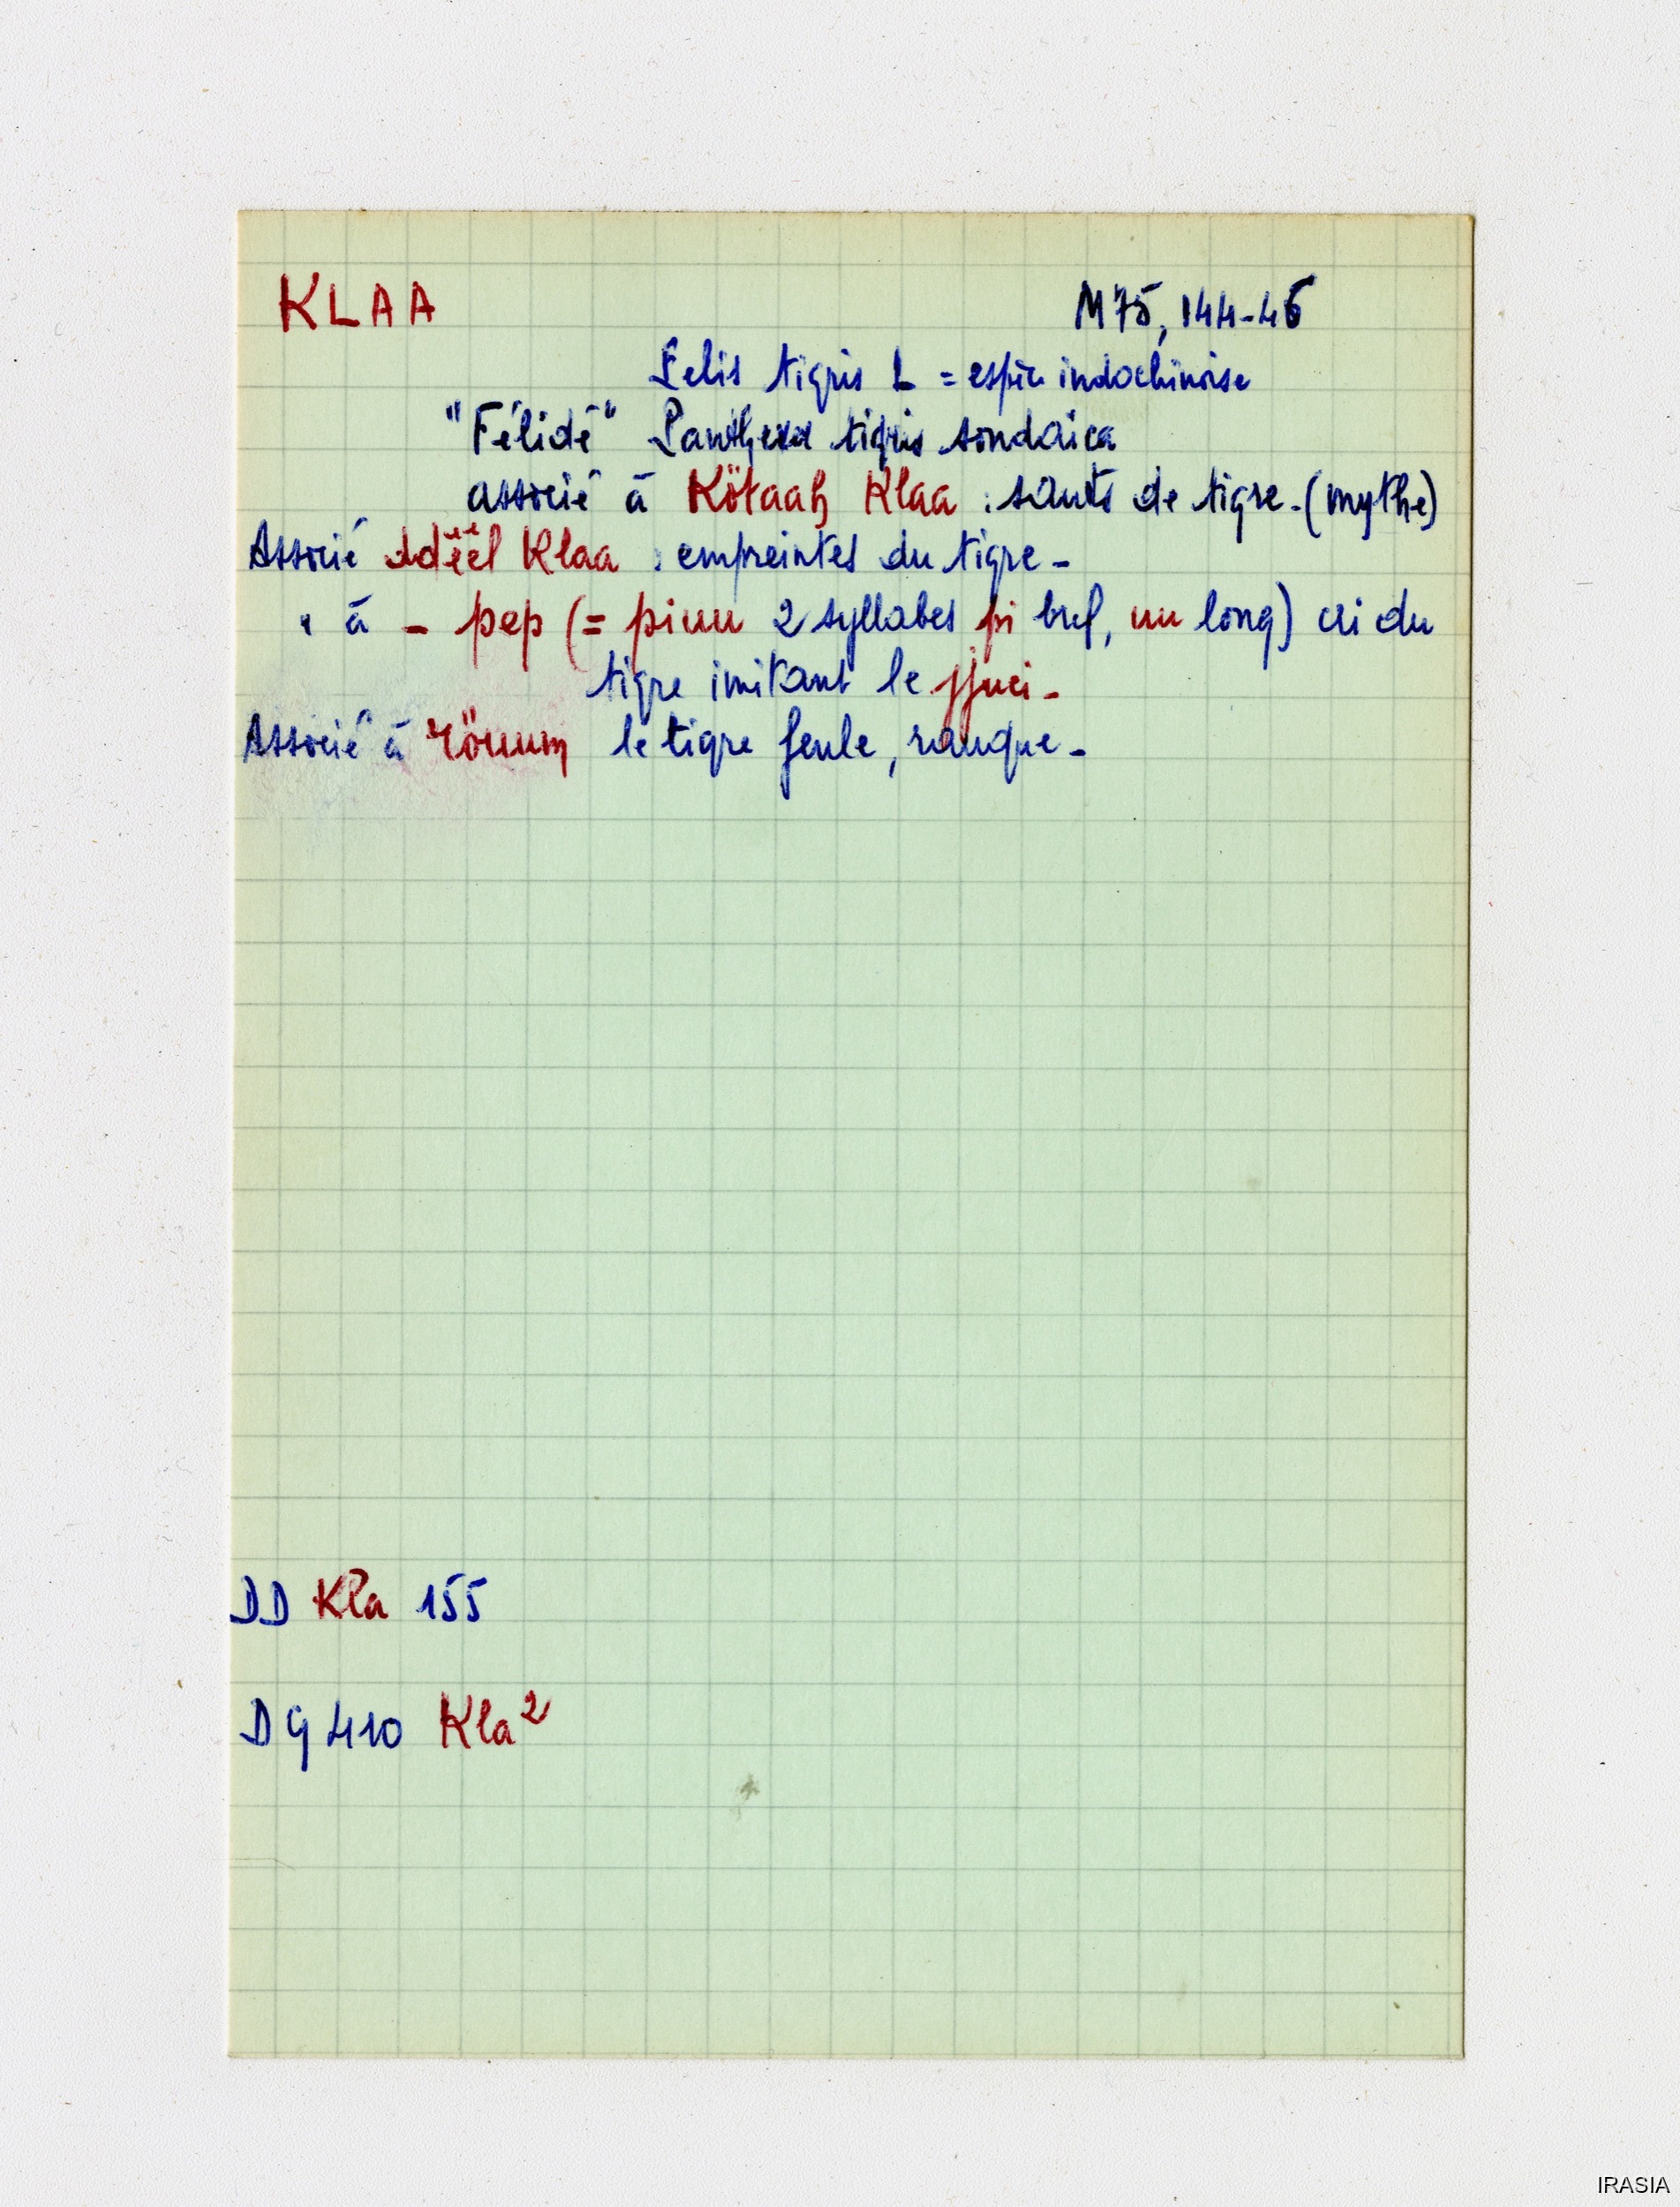 KLAA M75, 144-46
Felis tigris L = espèce indochinoise
"Félidé" Panthera tigris sondaica
associé à Kötaah Klaa : sauts de tigre - (mythe)
Associé ddëël Klaa : empreintes du tigre -
" à - pep (= piuu 2 syllabes pi bref, uu long) cri du
tigre imitant le jjuei -
Associé à röuum le tigre feule, rauque -
DD Kla 155
DG 410 Kla²
IRASIA